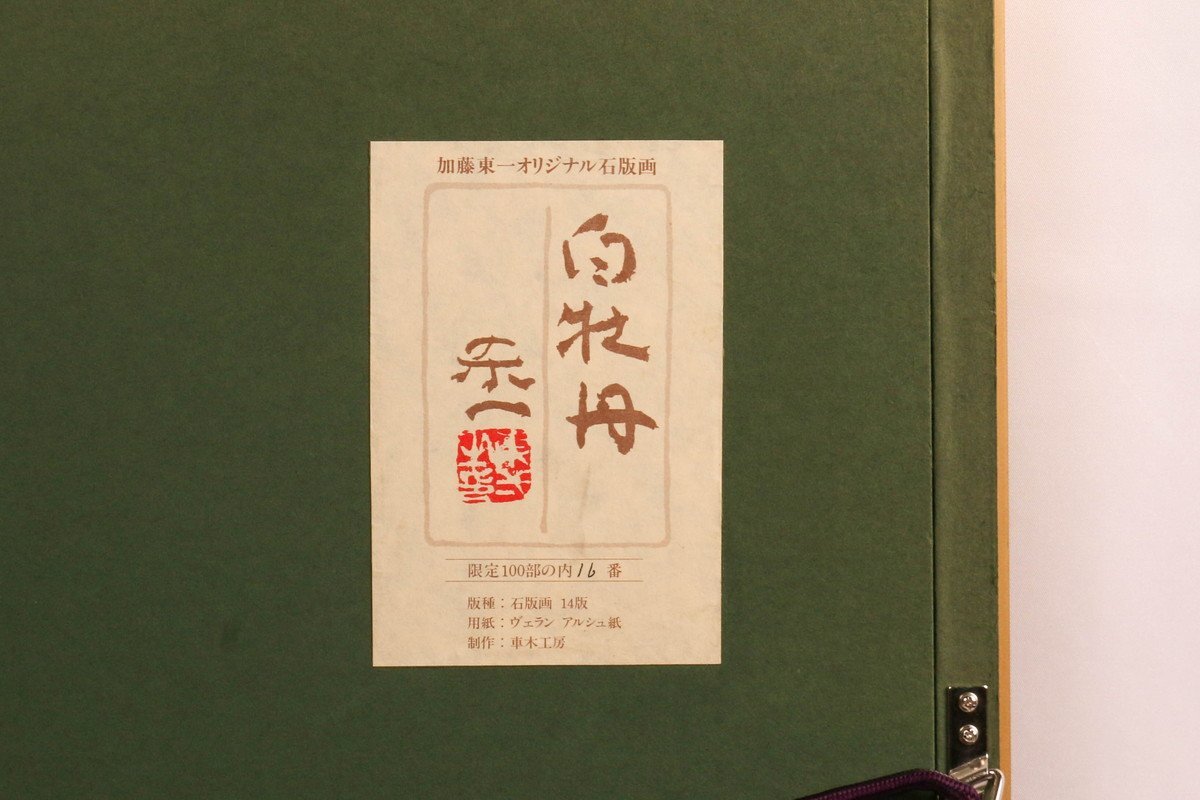 加藤東一オリジナル石版画
白牡丹
东一
限定100部の内16番
版種：石版画 14版
用紙：ヴェラン アルシュ紙
制作：車木工房